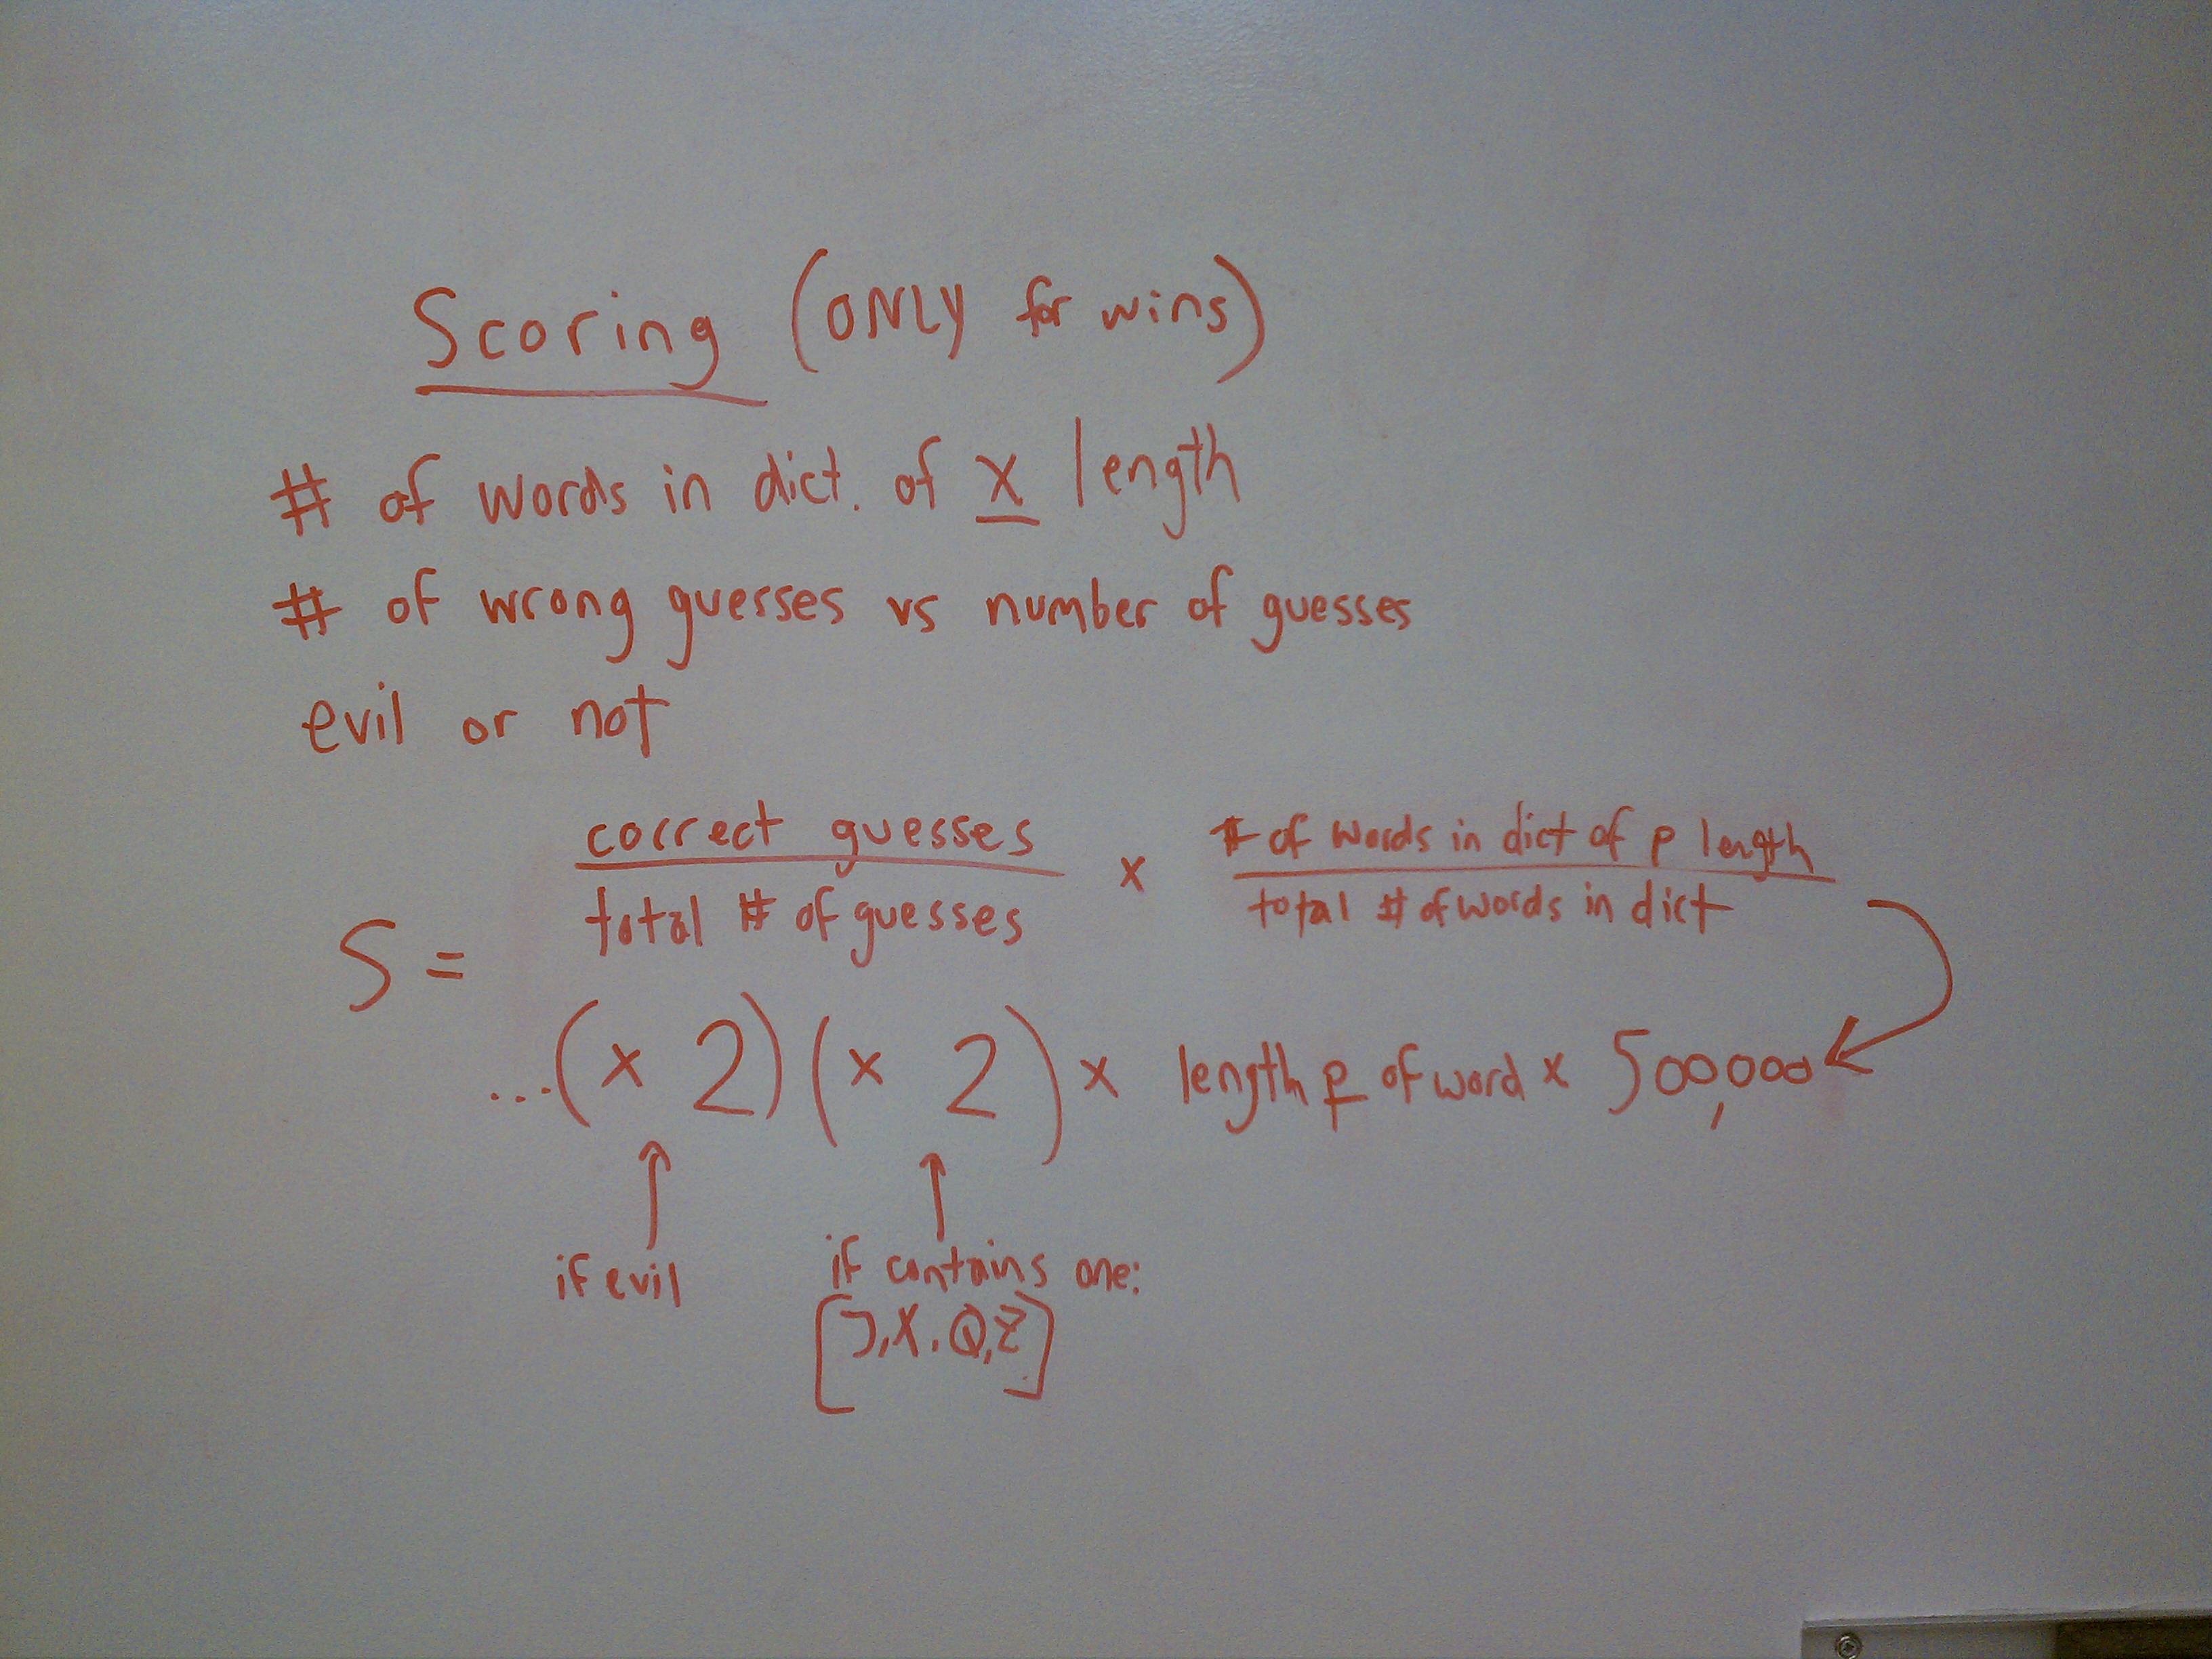 Scoring (ONLY for wins)
# of words in dict. of x length
# of wrong guesses vs number of guesses
evil or not
correct guesses × # of words in dict of p length
total # of guesses total # of words in dict
S =
...(× 2)(× 2) × length p of word × 500,000
if evil if contains one:
[J,X,Q,Z]